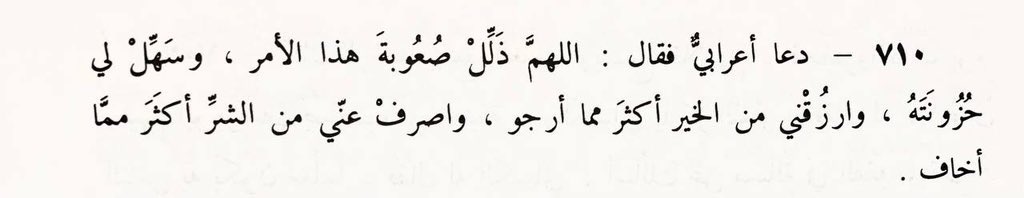 ٧١٠ – دعا أعرابيٌّ فقال : اللهمَّ ذَلِّلْ صُعُوبةَ هذا الأمر ، وسَهِّلْ لي
حُزُونَتَهُ ، وارزُقْني من الخير أكثرَ مما أرجو ، واصرفْ عنّي من الشرِّ أكثَرَ ممَّا
أخاف .